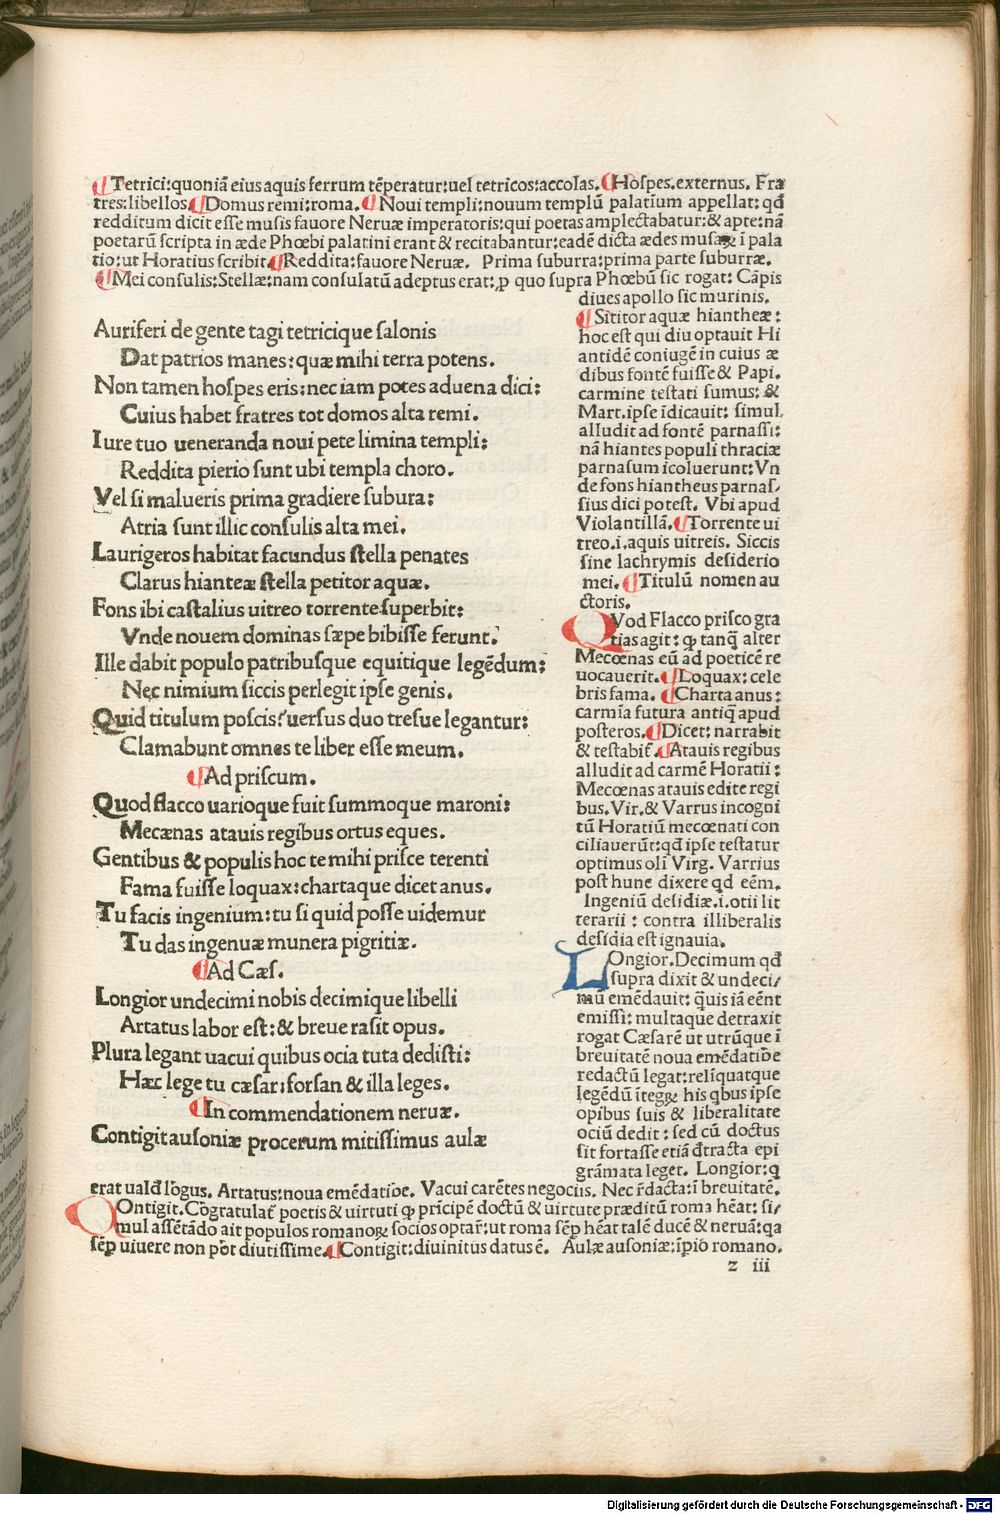 ¶Tetrici:quoniā eius aquis ferrum tēperatur:uel tetricos:accolas.¶Hoſpes.externus. Fra
tres:libellos.¶Domus remi:roma. ¶Noui templi:nouum templū palatium appellat: qđ
redditum dicit eſſe muſis fauore Neruæ imperatoris:qui poetas amplectabatur:& apte:nā
poetarū ſcripta in æde Phœbi palatini erant & recitabantur:eadē dicta ædes muſaꝝ ī pala
tio:ut Horatius ſcribit.¶Reddita:fauore Neruæ. Prima ſuburra:prima parte ſuburræ.
¶Mei conſulis:Stellæ:nam conſulatū adeptus erat:ꝓ quo ſupra Phœbū ſic rogat: Cāpis
diues apollo ſic murinis.
Auriferi de gente tagi tetricique ſalonis
Dat patrios manes:quæ mihi terra potens.
Non tamen hoſpes eris:nec iam potes aduena dici:
Cuius habet fratres tot domos alta remi.
Iure tuo ueneranda noui pete limina templi:
Reddita pierio ſunt ubi templa choro.
Vel ſi malueris prima gradiere ſubura:
Atria ſunt illic conſulis alta mei.
Laurigeros habitat facundus ſtella penates
Clarus hianteæ ſtella petitor aquæ.
Fons ibi caſtalius uitreo torrente ſuperbit:
Vnde nouem dominas ſæpe bibiſſe ferunt.
Ille dabit populo patribuſque equitique legēdum:
Nec nimium ſiccis perlegit ipſe genis.
Quid titulum poſcis?uerſus duo treſue legantur:
Clamabunt omnes te liber eſſe meum.
¶Ad priſcum.
Quod flacco uarioque fuit ſummoque maroni:
Mecænas atauis regibus ortus eques.
Gentibus & populis hoc te mihi priſce terenti
Fama fuiſſe loquax:chartaque dicet anus.
Tu facis ingenium:tu ſi quid poſſe uidemur
Tu das ingenuæ munera pigritiæ.
¶Ad Cæſ.
Longior undecimi nobis decimique libelli
Artatus labor eſt:& breue raſit opus.
Plura legant uacui quibus ocia tuta dediſti:
Hæc lege tu cæſar:forſan & illa leges.
¶In commendationem neruæ.
Contigit auſoniæ procerum mitiſſimus aulæ
¶Sititor aquæ hiantheæ:
hoc eſt qui diu optauit Hi
antidē coniugē in cuius æ
dibus fontē fuiſſe & Papi.
carmine teſtati ſumus: &
Mart.ipſe idicauit: ſimul
alludit ad fontē parnaſſi:
nā hiantes populi thraciæ
parnaſum icoluerunt:Vn
de fons hiantheus parnaſ⸗
ſius dici poteſt. Vbi apud
Violantillā.¶Torrente ui
treo.i.aquis uitreis. Siccis
ſine lachrymis deſiderio
mei. ¶Titulū nomen au
ctoris.
QVod Flacco priſco gra
tias agit: ꝙ tanq̄ alter
Mecœnas eū ad poeticē re
uocauerit.¶Loquax: cele
bris fama. ¶Charta anus:
carmīa futura antiq̄ apud
poſteros.¶Dicet: narrabit
& teſtabit̄.¶Atauis regibus
alludit ad carmē Horatii:
Mecœnas atauis edite regi
bus.Vir.& Varrus incogni
tū Horatiū mecœnati con
ciliauerūt:qđ ipſe teſtatur
optimus oli Virg. Varrius
poſt hunc dixere qd eēm.
Ingeniū deſidiæ.i.otii lit
terarii : contra illiberalis
deſidia eſt ignauia.
LOngior.Decimum qđ
ſupra dixit & undeci⸗
mū emēdauit: q̄uis iā eēnt
emiſſi: multaque detraxit
rogat Cæſarē ut utrūque ī
breuitatē noua emēdatiōe
redactū legat:relīquatque
legēdū ītegꝝ his qbus ipſe
opibus ſuis & liberalitate
ociū dedit : ſed cū doctus
ſit fortaſſe etiā đtracta epi
grāmata leget. Longior:q
erat ualđ lōgus. Artatus:noua emēdatiōe. Vacui carētes negociis. Nec r̄dacta:ī breuitatē.
COntigit.Cōgratulat̄ poetis & uirtuti ꝙ prīcipē doctū & uirtute præditū roma hēat: ſi⸗
mul aſſētādo ait populos romanoꝝ ſocios optar̄:ut roma ſēp hēat talē ducē & neruā:qa
ſēp uiuere non pōt diutiſſime.¶Contigit:diuinitus datus ē. Aulæ auſoniæ:īpio romano.
z iii
Digitalisierung gefördert durch die Deutsche Forschungsgemeinschaft - DFG